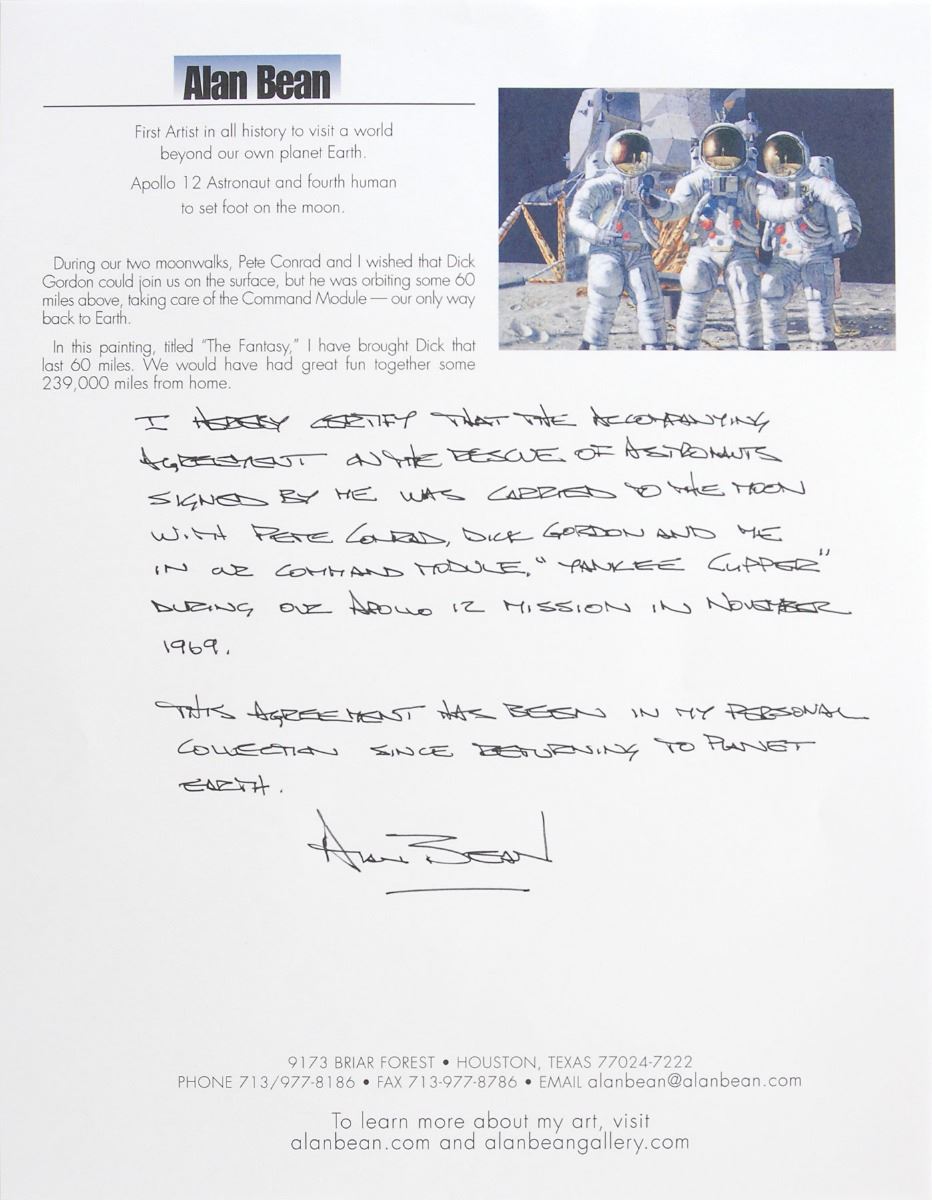 Alan Bean
First Artist in all history to visit a world
beyond our own planet Earth.
Apollo 12 Astronaut and fourth human
to set foot on the moon.
During our two moonwalks, Pete Conrad and I wished that Dick
Gordon could join us on the surface, but he was orbiting some 60
miles above, taking care of the Command Module — our only way
back to Earth.
In this painting, titled "The Fantasy," I have brought Dick that
last 60 miles. We would have had great fun together some
239,000 miles from home.
I HEREBY CERTIFY THAT THE ACCOMPANYING
AGREEMENT ON THE RESCUE OF ASTRONAUTS
SIGNED BY ME WAS CARRIED TO THE MOON
WITH PETE CONRAD, DICK GORDON AND ME
IN OUR COMMAND MODULE, "YANKEE CLIPPER"
DURING OUR APOLLO 12 MISSION IN NOVEMBER
1969.
THIS AGREEMENT HAS BEEN IN MY PERSONAL
COLLECTION SINCE RETURNING TO PLANET
EARTH.
ALAN BEAN
9173 BRIAR FOREST • HOUSTON, TEXAS 77024-7222
PHONE 713/977-8186 • FAX 713-977-8786 • EMAIL alanbean@alanbean.com
To learn more about my art, visit
alanbean.com and alanbeangallery.com